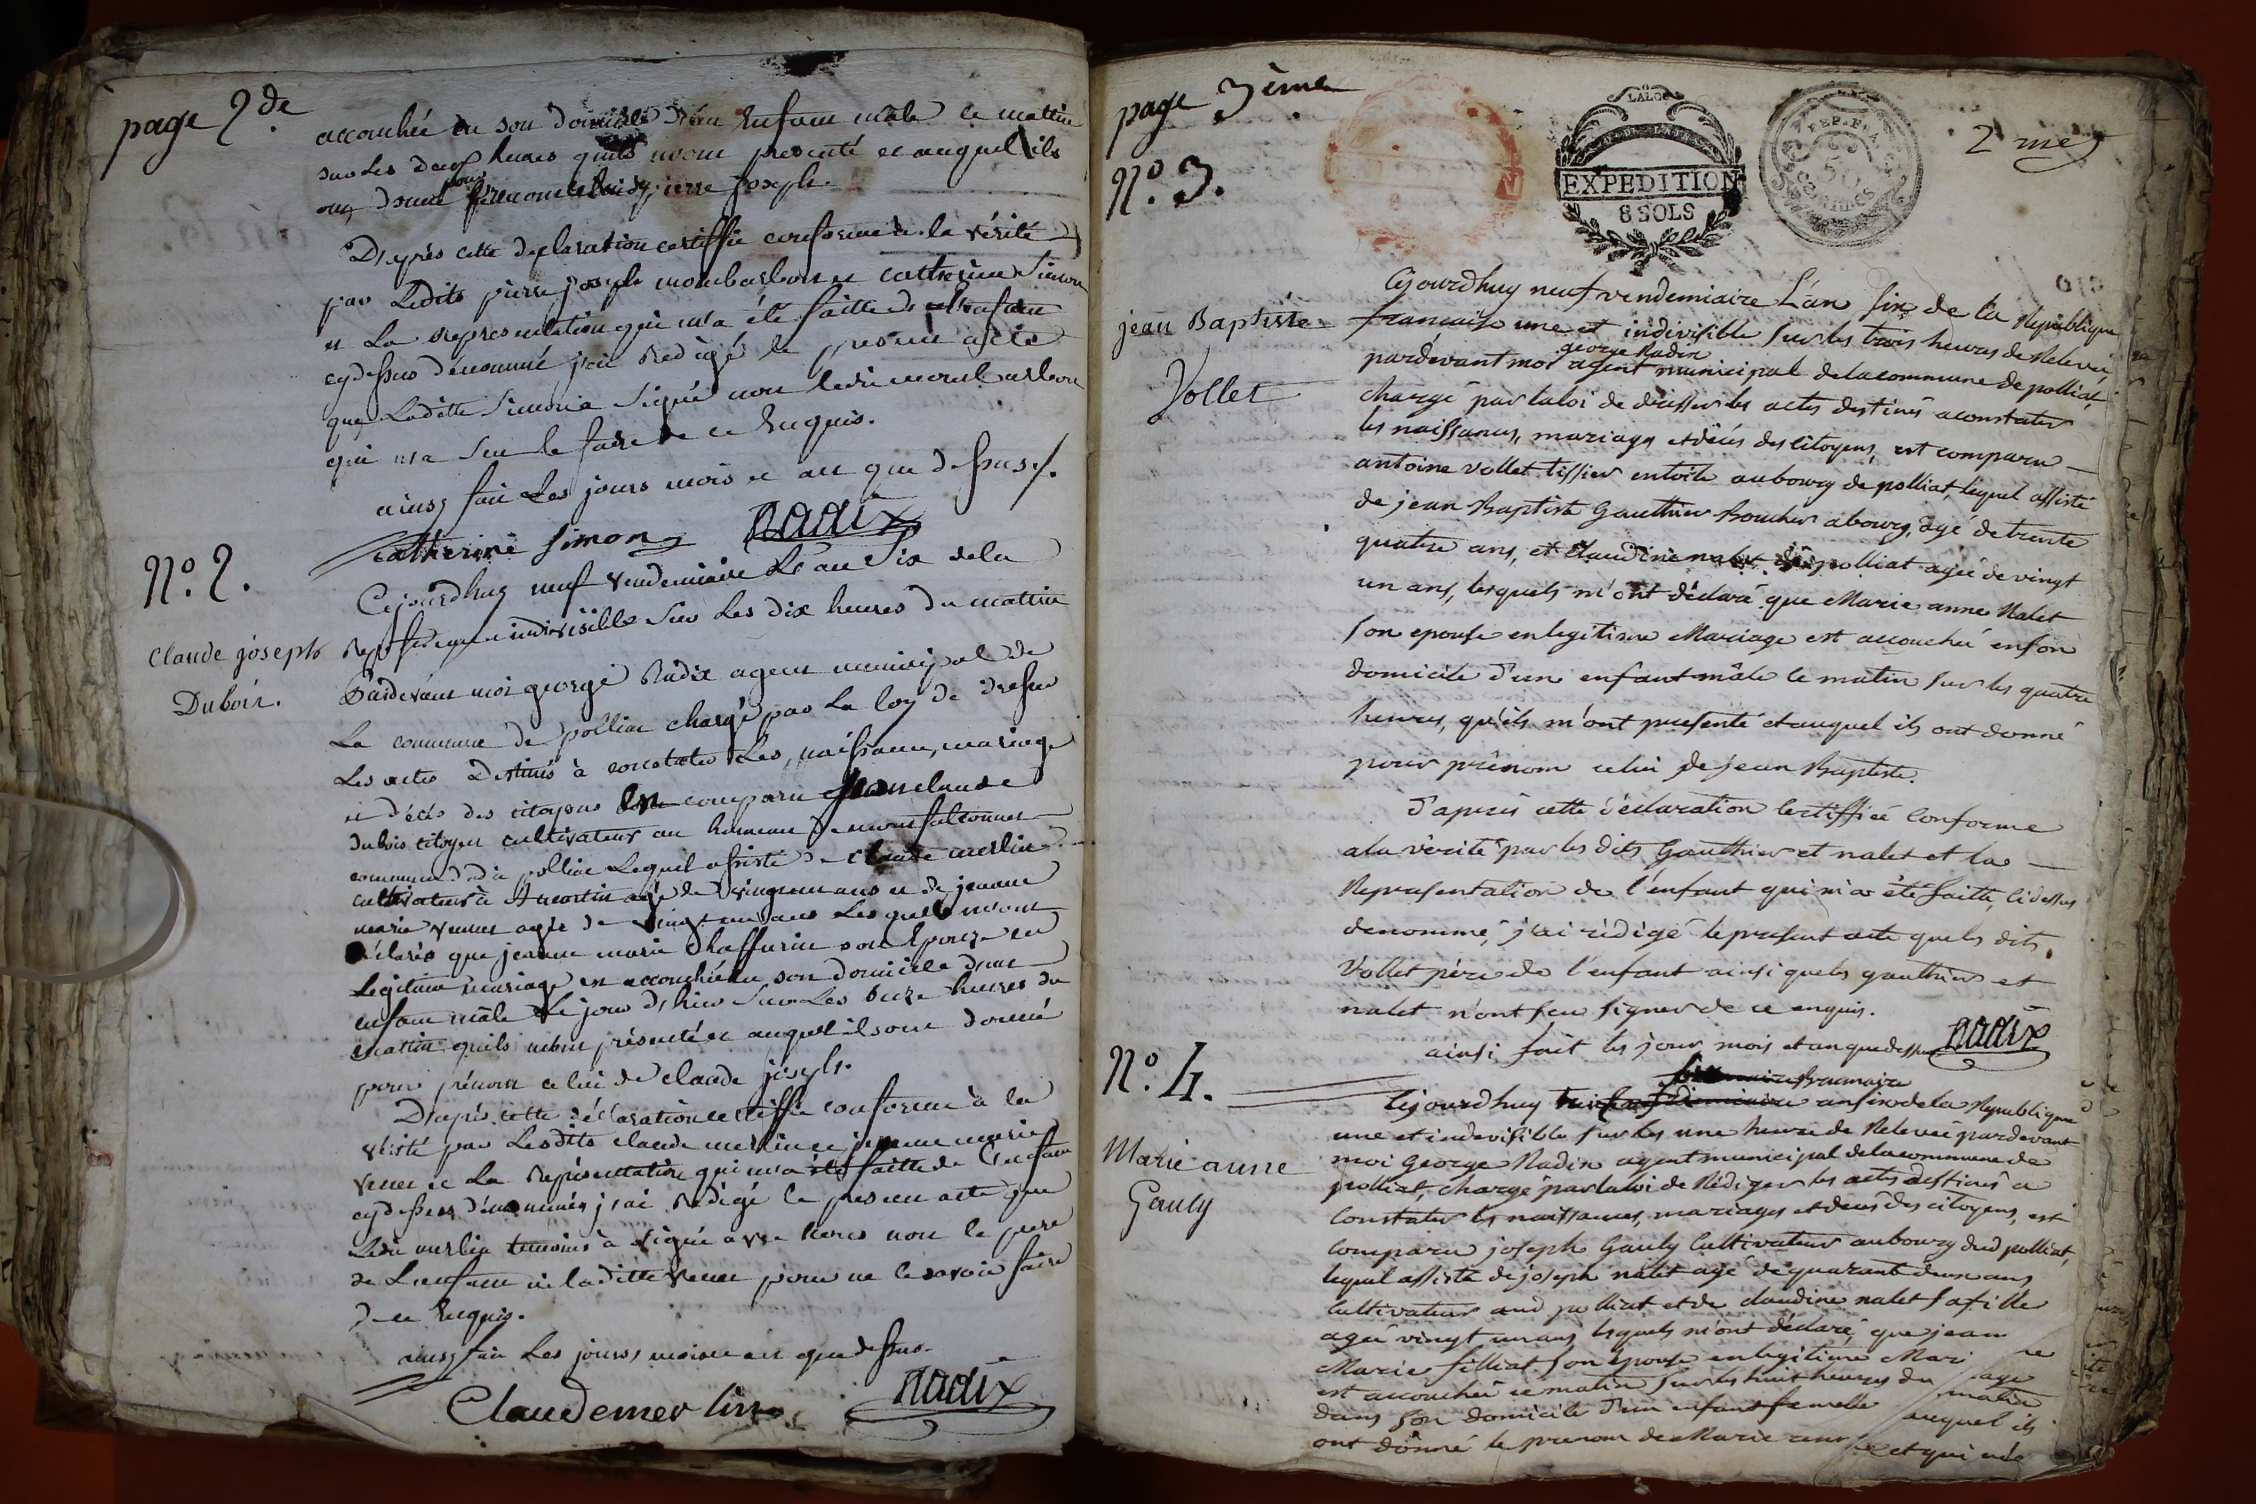 page 2de
accouchée en son domicile d'un Enfant mâle ce mattin
sur Les deux heures quils m'ont presenté et auquel ils
ont donné pour prénom celui de pierre joseph.
D'après cette déclaration certiffiée conforme à la vérité
par Ledits pierre joseph monbarbon et catherine Simon
et La representation qui m'a été faitte de l'enfant
cydessus dénommé j'ai redigé le present acte
que Laditte Simon a Signé non ledit monbarbon
qui n'a Seu le faire de ce Enquis.
ainsy fait Les jours mois et an que dessus /.
Catherine simon Radix
N.o 2.
Claude joseph
Dubois.
Cejourdhuy neuf vendemiaire L'an Six de la
Rep. française indivisible Sur Les dix heures du mattin
Pardevant moi george Radix agent municipal de
La commune de polliat chargé par La loy de dresser
Les actes Destinés à constater Les naissance, mariage
et décès des citoyens Est comparu jean claude
dubois citoyen cultivateur au hameau de montfalconnet
commune dudit polliat Lequel assisté de claude merlin
cultivateur à St martin agé de vingt un ans et de jeanne
marie venet agée de vingt un ans Lesquels m'ont
déclarés que jeanne marie Chaffurin son Epouze en
Legitime mariage est accouchée en son domicile d'un
enfant mâle Le jour d'hier Sur Les onze heures du
mattin quils m'ont présenté et auquel ils ont donné
pour prénom celui de claude joseph.
D'après cette déclaration certiffiée conforme à la
vérité par Lesdits claude merlin et jeanne marie
venet et La représentation qui m'a été faitte de L'enfant
cydessus dénommés j'ai Redigé le present acte que
Ledit merlin temoins à signé avec nous non le pere
de L'enfant ni laditte venet pour ne le savoir faire
de ce Enquis.
ainsy fait Les jours, mois et an que dessus.
Claude merlin Radix
page 3ème
2 me
EXPEDITION
8 SOLS
REP. FRA.
50
CENTIMES
N.o 3.
jean Baptiste
Vollet
Cejourdhuy neuf vendemiaire L'an six de la Republique
francaise une et indivisible sur les trois heures de Relevée
george Radix
pardevant moi agent municipal de la commune de polliat,
chargé par la loi de dresser les actes destinés a constater
les naissances, mariages et décès des citoyens, est comparu
antoine vollet tissier en toile au bourg de polliat, lequel assisté
de jean Baptiste Gauthier Boucher a bourg, agé de trente
quatre ans, et claudine nalet de polliat agée de vingt
un ans, lesquels m'ont déclaré que Marie anne Nalet
son epouse en legitime Mariage est accouchée en son
domicile d'un enfant mâle le matin sur les quatre
heures, qu'ils m'ont presenté et auquel ils ont donné
pour prénom celui de jean Baptiste.
D'après cette déclaration certiffiée Conforme
a la vérité par les dits Gauthier et nalet et la
Representation de l'enfant qui m'a été faitte, ci dessus
denommé, j'ai rédigé le present acte que les dits
Vollet père de l'enfant ainsi que les gauthier et
nalet n'ont seu signer de ce enquis.
ainsi fait les jour mois et an que dessus Radix
N.o 4.
Marie anne
Gauly
frumaire
Cejourdhuy an six de la Republique
une et indivisible sur les une heure de Relevée pardevant
moi George Radix agent municipal de la commune de
polliat, chargé par la loi de Rédiger les actes destinés a
Constater les naissances, mariages et decès des citoyens, est
Comparu joseph Gauly Cultivateur au bourg dud polliat,
lequel assisté de joseph nalet agé de quarante deux ans
Cultivateur aud polliat et de claudine nalet sa fille
agée vingt un ans, lesquels m'ont déclaré, que jean ne
Marie filliat son épouse en legitime Mari age
est accouchée ce matin sur les huit heures du matin
dans son domicile d'un enfant femelle auquel ils
ont donné le prenom de Marie anne et qui née